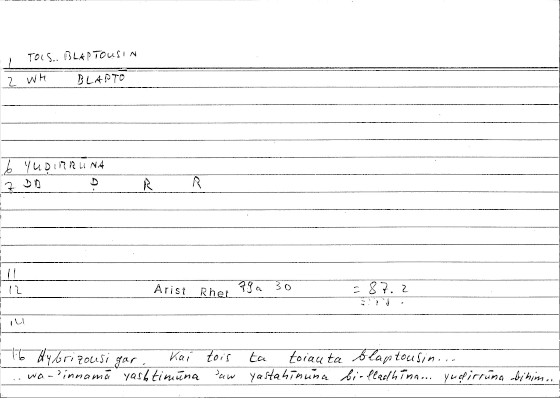 1 TOIS.. BLAPTOUSIN
2 WH BLAPTŌ
6 YUḌIRRŪNA
7 ḌD Ḍ R R
11
12 Arist Rhet 79a 30 = 87. 2
14
16 Hybrizousi gar. Kai tois ta toiauta blaptousin...
.. wa-'innamā yashtimūna 'aw yastahīnūna bi-lladhīna... yuḍirrūna bihim..